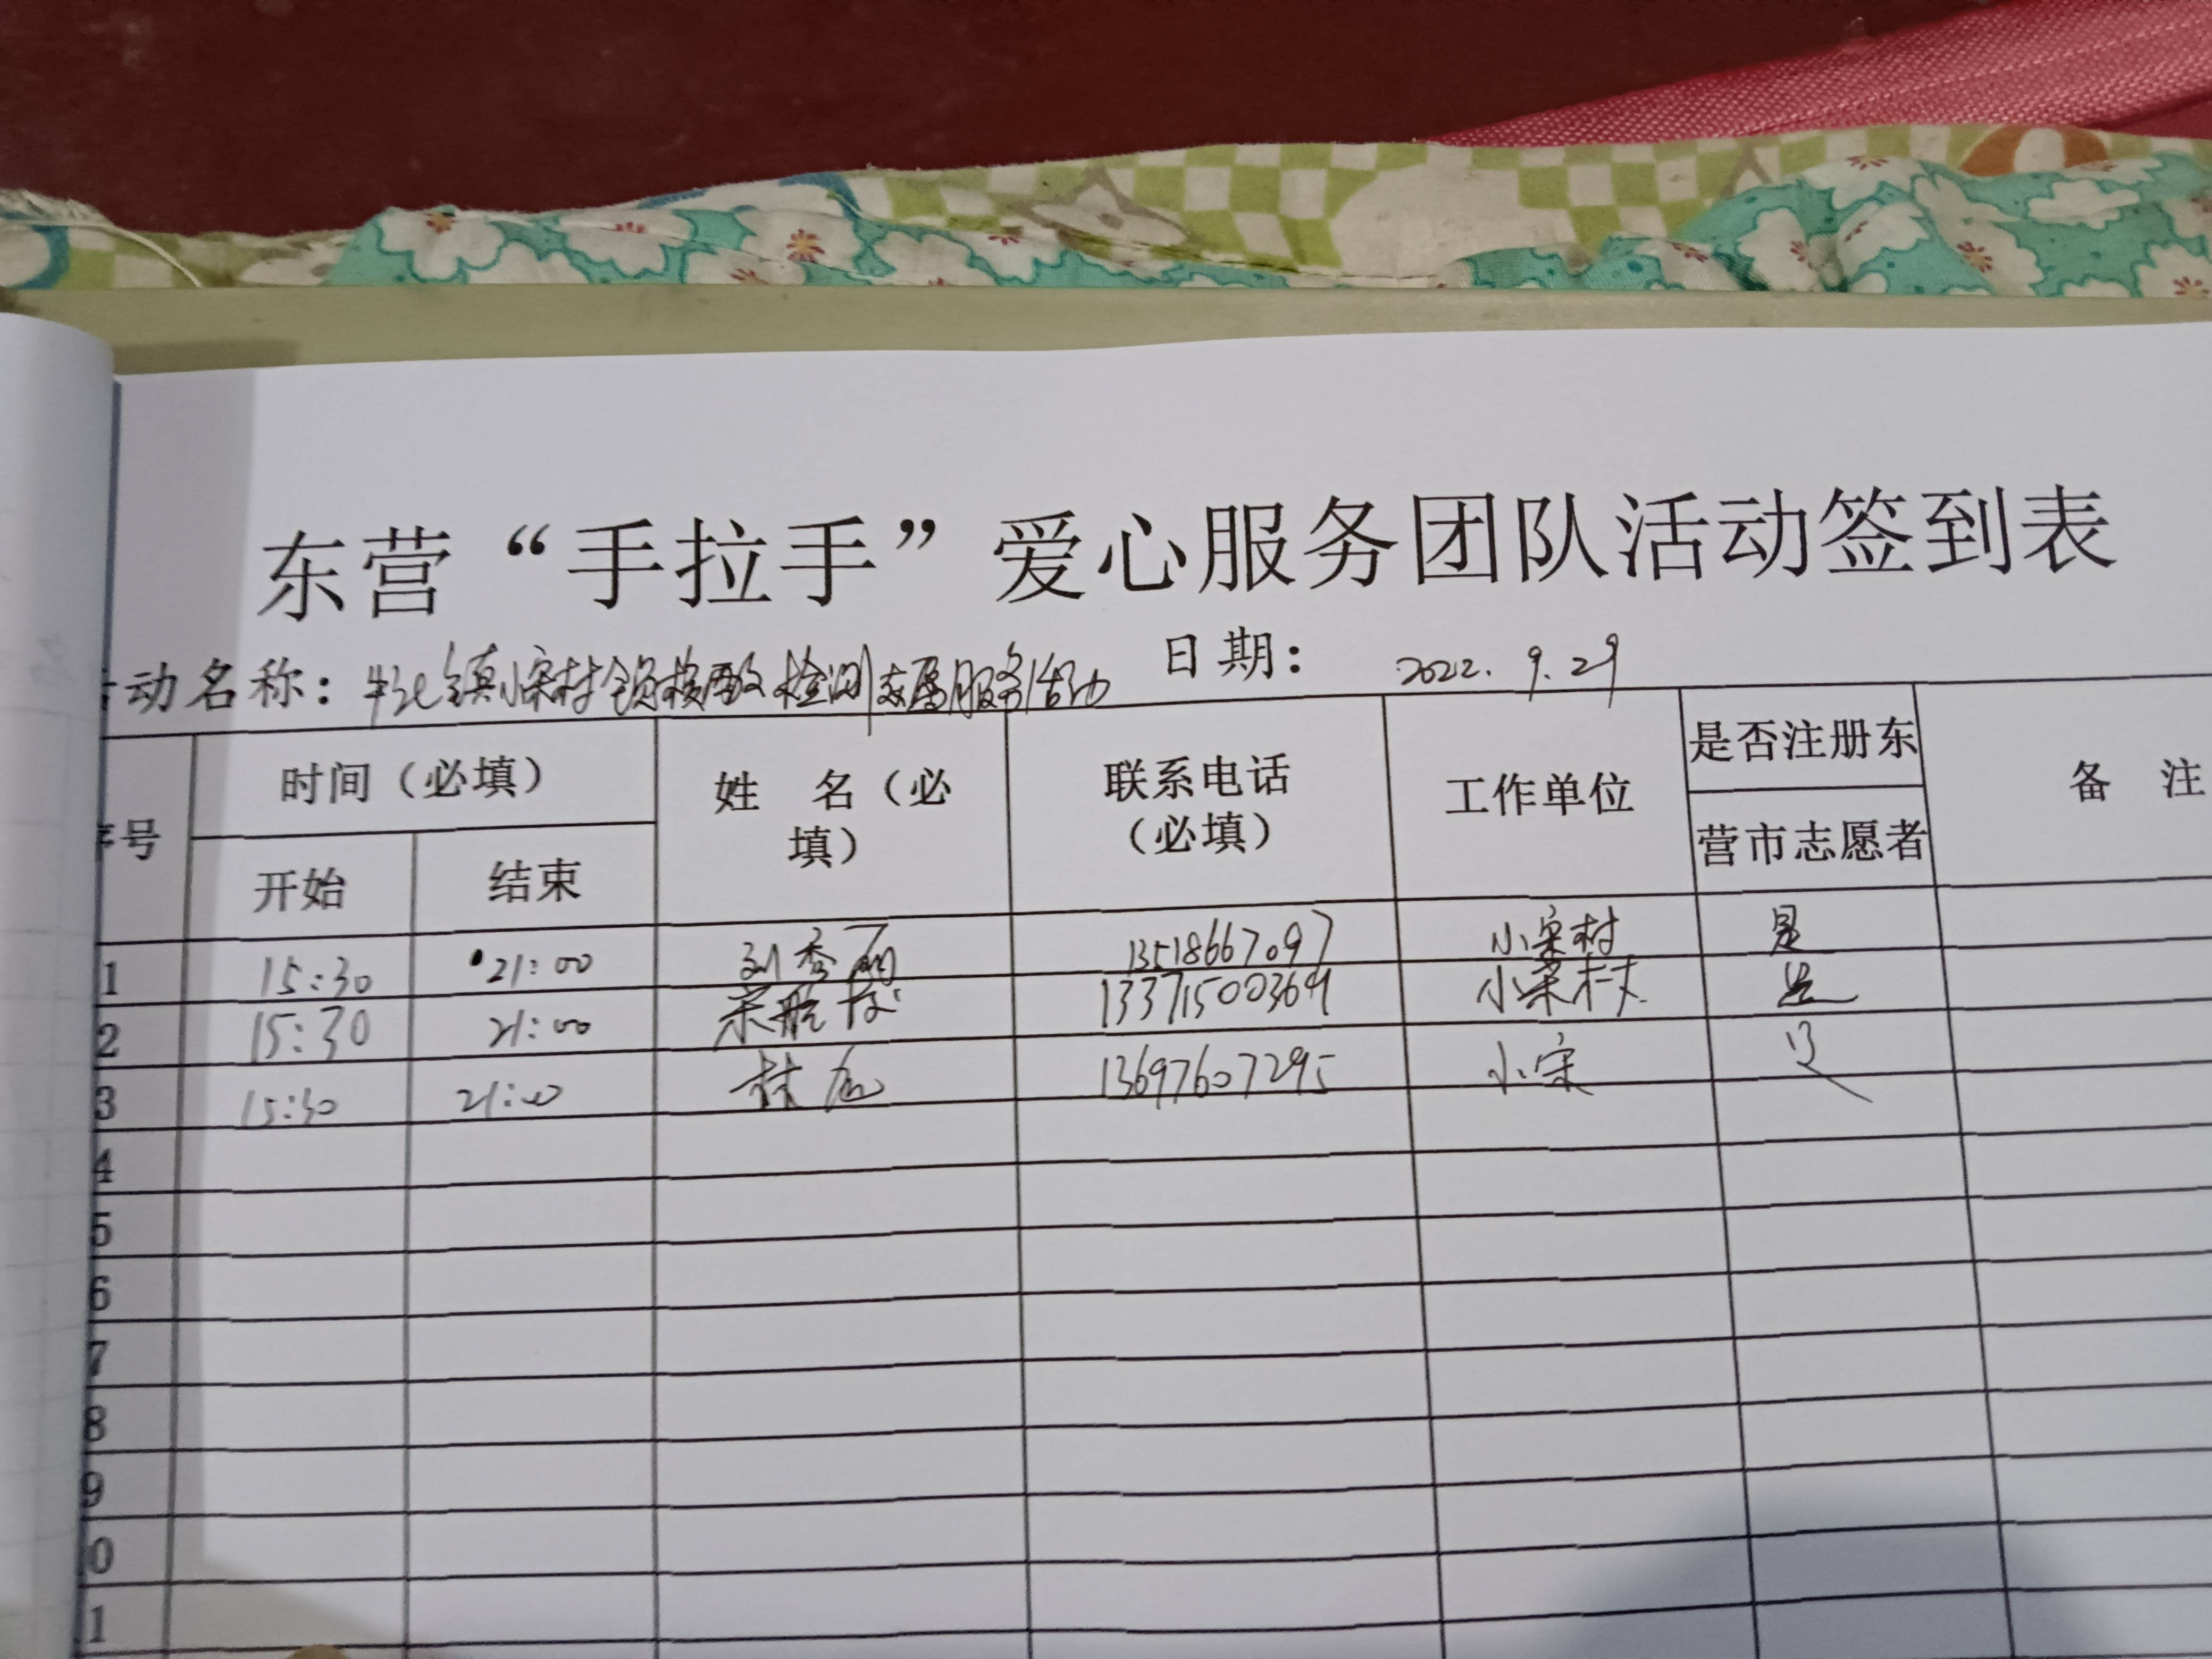 东营“手拉手”爱心服务团队活动签到表
动名称：牛庄镇小宋村全员核酸检测志愿服务活动 日期： 2022.9.29
号 时间（必填） 姓 名（必填） 联系电话（必填） 工作单位 是否注册东营市志愿者 备 注
开始 结束
1 15:30 21:00 刘秀丽 13518667097 小宋村 是
2 15:30 21:00 宋 13371500369 小宋村 是
3 15:30 21:00 林 13697607295 小宋 是
4
5
6
7
8
9
0
1